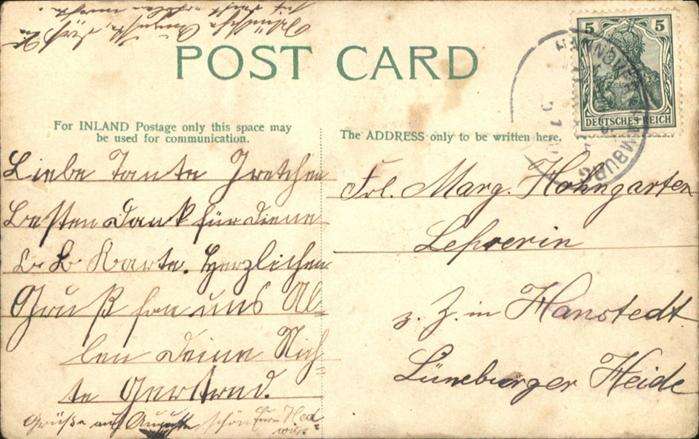 POST CARD
5 5
DEUTSCHES REICH
HANNOVER HAMBURG
For INLAND Postage only this space may
be used for communication.
The ADDRESS only to be written here.
Liebe Tante Gretchen
Besten Dank für deine
L. L. Karte. Herzlichen
Gruß fon uns Al-
len deine Nich-
te Gertrud.
Grüße auch August schön
Frl. Marg. Hohngarten
Lehrerin
z. Z. in Hanstedt
Lüneburger Heide